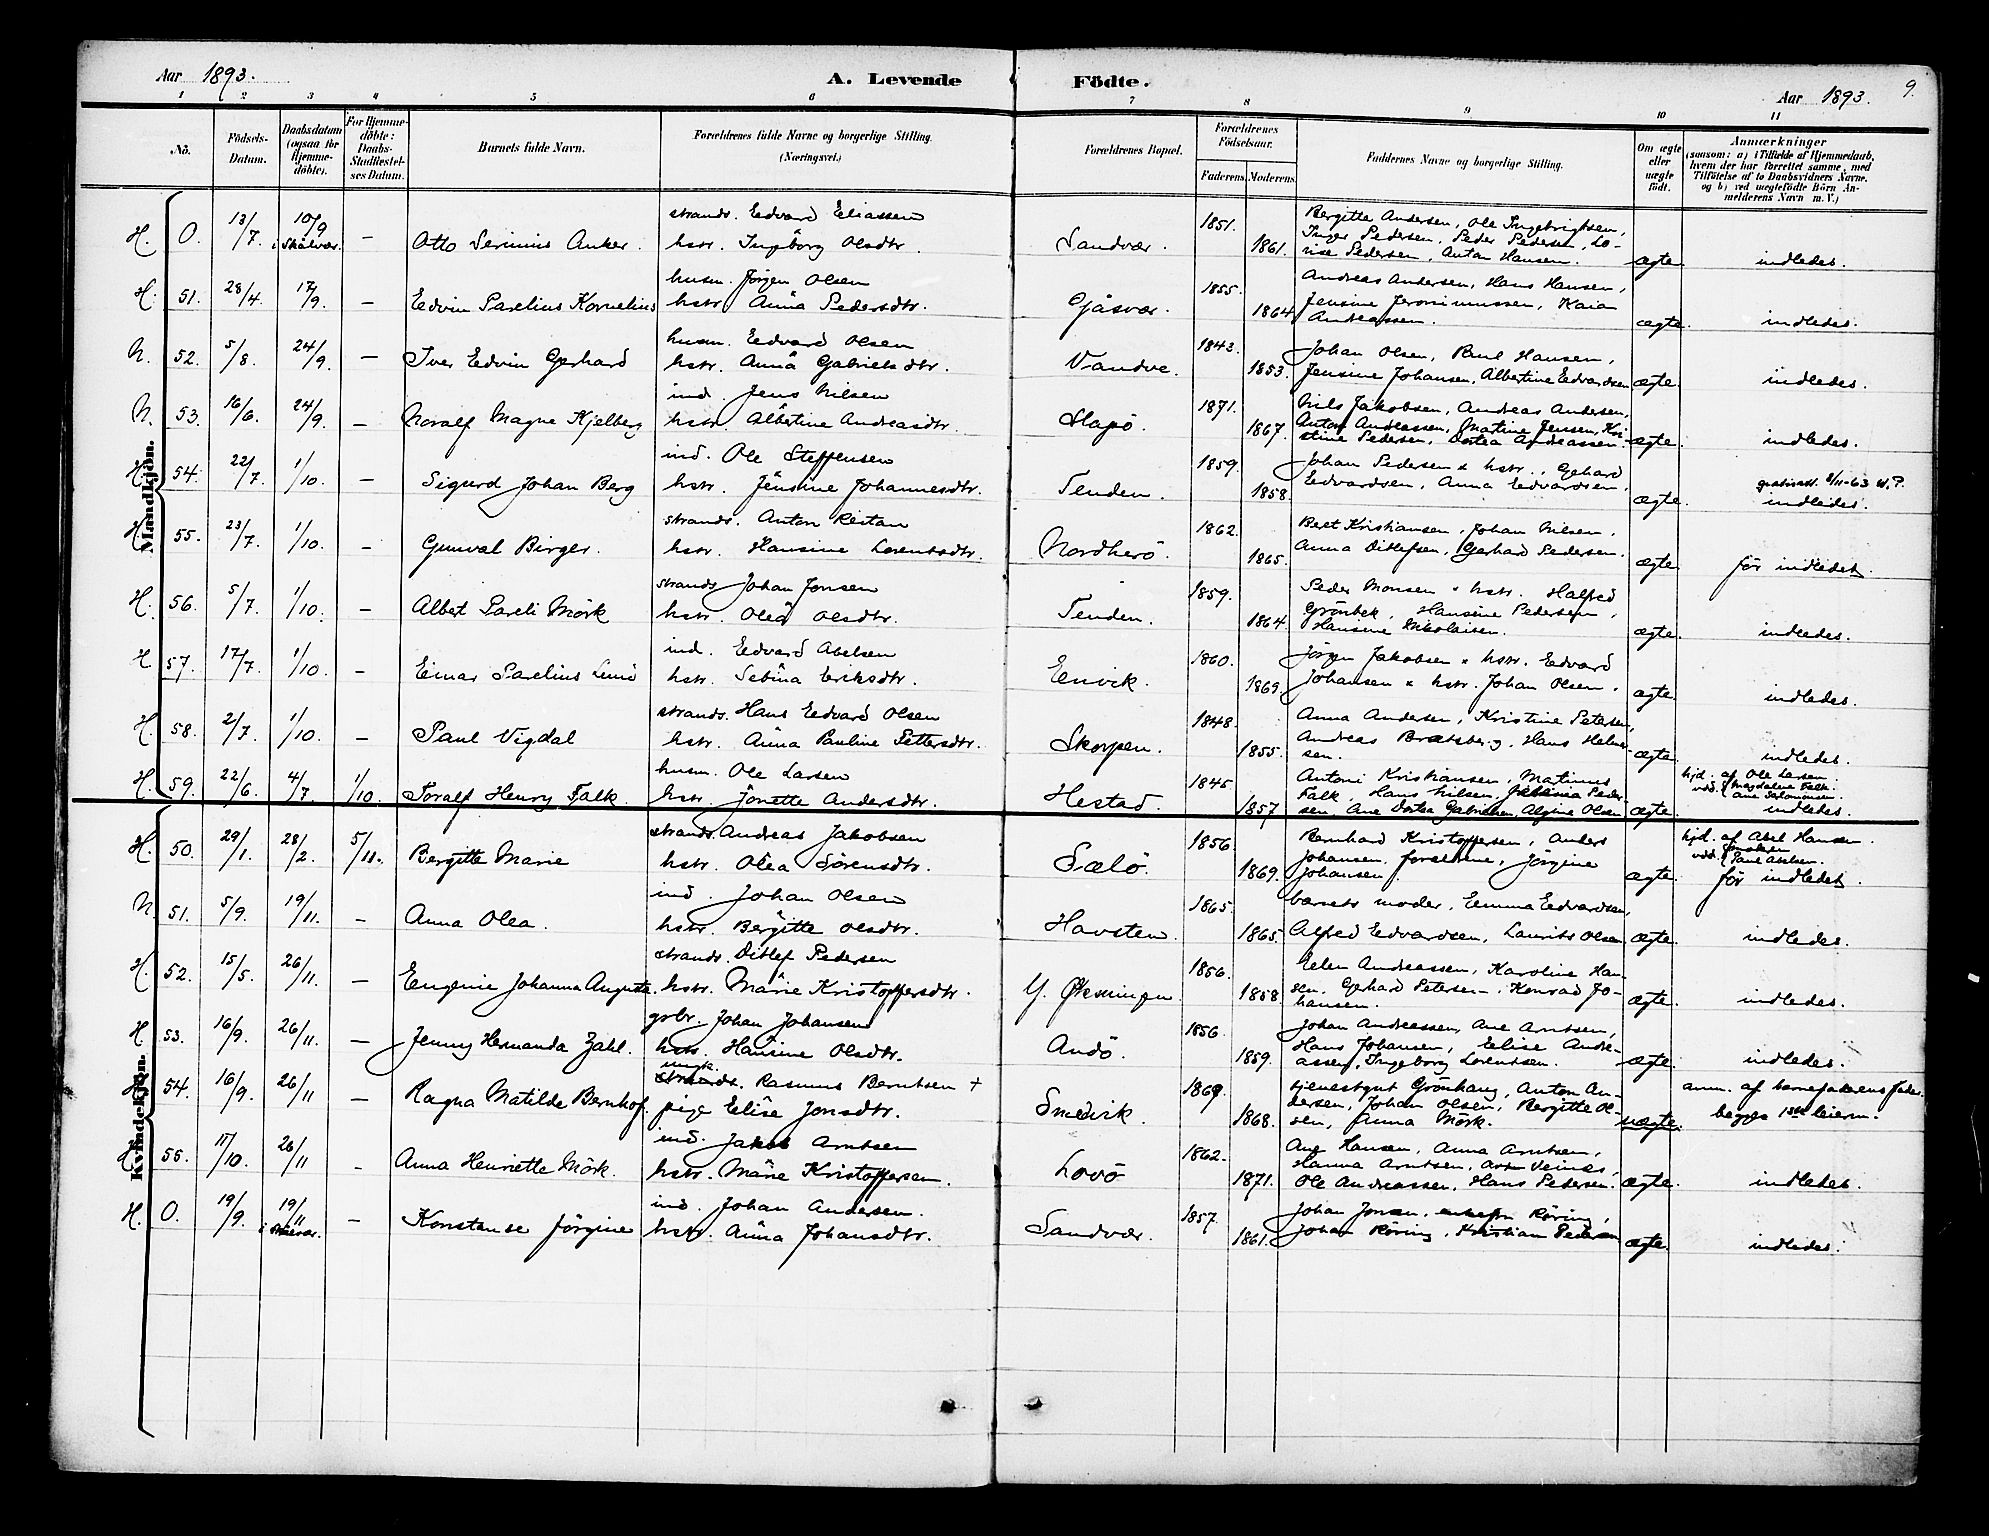 Aar 1893.
A. Levende Födte.
Aar 1893.
9.
1 2 3 4 5 6 7 8 9 10 11
No.
Födsels-Datum.
Daabsdatum (ogsaa for Hjemme-döbte).
For Hjemme-döbte: Daabs-Stadfæstel-ses Datum.
Barnets fulde Navn.
Forældrenes fulde Navne og borgerlige Stilling. (Næringsvei.)
Forældrenes Bopæl.
Forældrenes Födselsaar.
Faderens. Moderens.
Faddernes Navne og borgerlige Stilling.
Om ægte eller uægte födt.
Anmærkninger (saasom: a) i Tilfælde af Hjemmedaab, hvem der har forrettet samme, med Tilföielse af to Daabsvidners Navne. og b) ved uægtefödte Börn Anmelderens Navn m. V.)
Mandkjön.
H. 0. 13/7. 10/9 i Skålvær. – Otto Serinius Anker. strands. Edvard Eliassen hstr. Ingeborg Olsdtr. Sandvær. 1851. 1861. Bergitte Andersen, Ole Ingebrigtsen, Inger Pedersen, Peder Pedersen, Lovise Pedersen, Anton Hansen. ægte. indledes.
H. 51. 28/4. 17/9. – Edvin Parelius Kornelius husm. Jörgen Olsen hstr. Anna Pedersdtr. Gåsvær. 1855. 1864. Andreas Andersen, Hans Hansen, Jensine Jeronimussen, Kaia Andreassen. ægte. indledes.
N. 52. 5/8. 24/9. – Iver Edvin Gerhard husm. Edvard Olsen hstr. Anna Gabrielsdtr. Vandve. 1843. 1853. Johan Olsen, Paul Hansen, Jensine Johansen, Albertine Edvardsen ægte. indledes.
N. 53. 16/6. 24/9. – Noralf Magne Kjelberg ind. Jens Nilsen hstr. Albertine Andreasdtr. Slapö. 1871. 1867. Nils Jakobsen, Andreas Andersen, Anton Andreassen, Martine Jensen, Kristine Pedersen, Dortea Andreassen. ægte. indledes.
H. 54. 22/7. 1/10. – Sigurd Johan Berg ind. Ole Steffensen hstr. Jensine Johannesdtr. Tenden. 1859. 1858. Johan Pedersen & hstr., Gehard Edvardsen, Anna Edvardsen. ægte. gratisatt. 8/11-63 W.P. indledes.
H. 55. 23/7. 1/10. – Gunval Birger. strands. Anton Ristan hstr. Hansine Lorentsdtr. Nordherö. 1862. 1865. Bert Kristiansen, Johan Nilsen, Anna Ditlefsen, Gerhard Pedersen. ægte. för indledet.
H. 56. 5/7. 1/10. – Albert Pareli Mörk strands Johan Jonsen hstr. Olea Olsdtr. Tenden. 1859. 1864. Peder Monsen & hstr. Halfred Grönbek, Hansine Pedersen, Hansine Nikolaisen. ægte. indledes.
H 57. 17/7. 1/10. – Einar Parelius Lund ind. Edvard Abelsen hstr. Sebina Eriksdtr. Envik. 1860. 1869. Jörgen Jakobsen & hstr. Edvard Johansen & hstr. Johan Olsen. ægte. indledes.
H. 58. 2/7. 1/10. – Paul Vigdal strands. Hans Edvard Olsen hstr. Anna Pauline Pettersdtr. Skorpen. 1848. 1855. Anna Andersen, Kristine Petersen, Andreas Bratsberg, Hans Helmersen. ægte. indledes.
H. 59. 22/6. 4/7. 1/10. Toralf Henry Falk. husm. Ole Larsen hstr. Jonette Andersdtr. Hestad. 1845. 1857 Antoni Kristiansen, Matinus Falk, Hans Nilsen, Pedersen, Ane Dortea Gabrielsen, Algine Olsen ægte. hjd. af Ole Larsen. vdd. Magdalene Falk. Ane Salomonsen. indledes.
Kvindekjön.
H. 50. 29/1. 28/2. 5/11. Bergitte Marie strands. Andreas Jakobsen hstr. Olea Sörensdtr. Sælö. 1856. 1869. Bernhard Kristoffersen, Anders Johansen, forældrene, Jörgine Johansen. ægte. hjd. af Abel Hansen. vdd. Paul Abelsen. för indledet.
N 51. 5/9. 19/11. – Anna Olea. ind. Johan Olsen hstr. Bergitte Olsdtr. Havsten. 1865. 1865. barnets moder, Emma Edvardsen, Alfred Edvardsen, Laurits Olsen ægte. indledes.
H. 52. 15/5. 26/11. – Eugenie Johanna Augusta. strands. Ditlef Pedersen hstr. Marie Kristoffersdtr. Y. Öksningen 1856. 1858. Elen Andreassen, Karoline Hansen, Gerhard Petersen, Konrad Johansen. ægte. indledes.
H 53. 16/9. 26/11. – Jenny Hermanda Zahl. gbr. Johan Johansen hstr. Hansine Olsdtr. Andö. 1856. 1859. Johan Andreassen, Ane Arntsen, Hans Johansen, Elise Andreassen, Ingeborg Lorentsen. ægte. indledes.
H 54. 16/9. 26/11. – Ragna Matilde Bernhof. ungk. strands. Rasmus Berntsen + pige Elise Jonsdtr. Smedvik. 1869. 1868. tjenestgut Grönhaug, Anton Andersen, Johan Olsen, Bergitte Olsen, Anna Mörk. uægte. anm. af barnefaderens fader. begges 1ste leierm.
H 55. 17/10. 26/11 – Anna Henriette Mörk. ind. Jakob Arntsen hstr. Marie Kristoffersen. Lovö 1862. 1871. Aug Hansen, Anna Arntsen, Hanna Arntsen, Veines, Ole Andreassen, Hans Petersen. ægte. indledes.
H. 0. 19/9. 19/11 i Skålvær. – Konstanse Jörgine ind. Johan Andersen. hstr. Anna Johansdtr. Sandvær. 1857. 1861. Johan Jonsen, enkefru Röring, Johan Röring, Kristian Pedersen ægte. indledes.